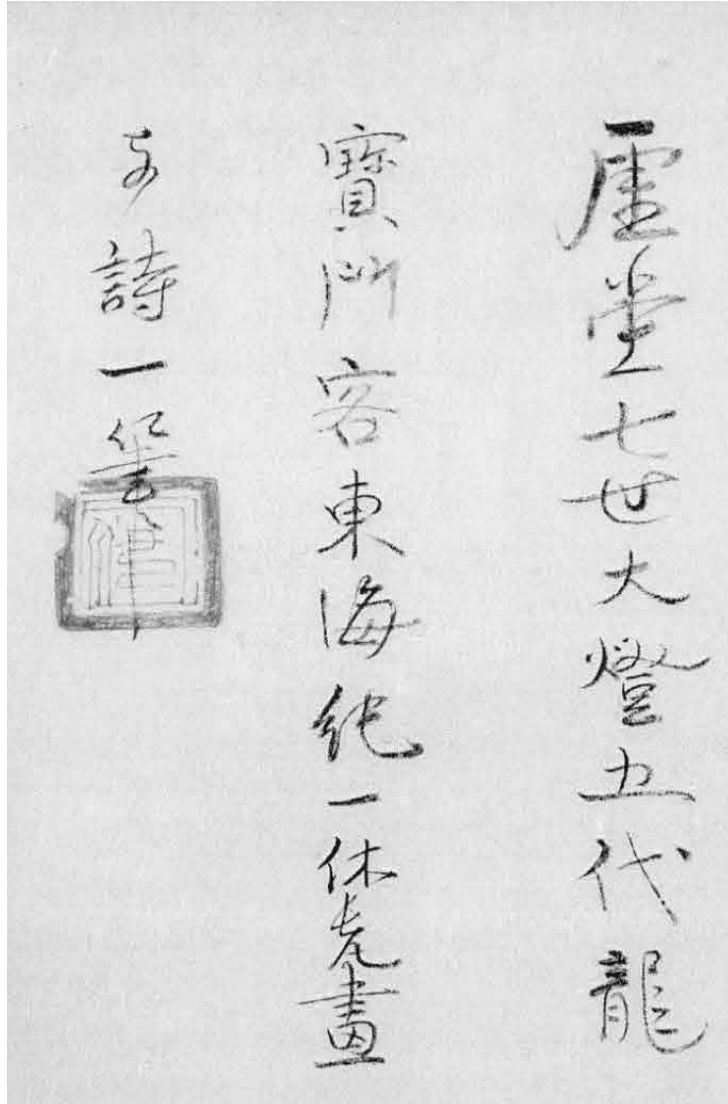 虚堂七世大燈五代龍
寶門客東海純一休老畫
并詩一筆